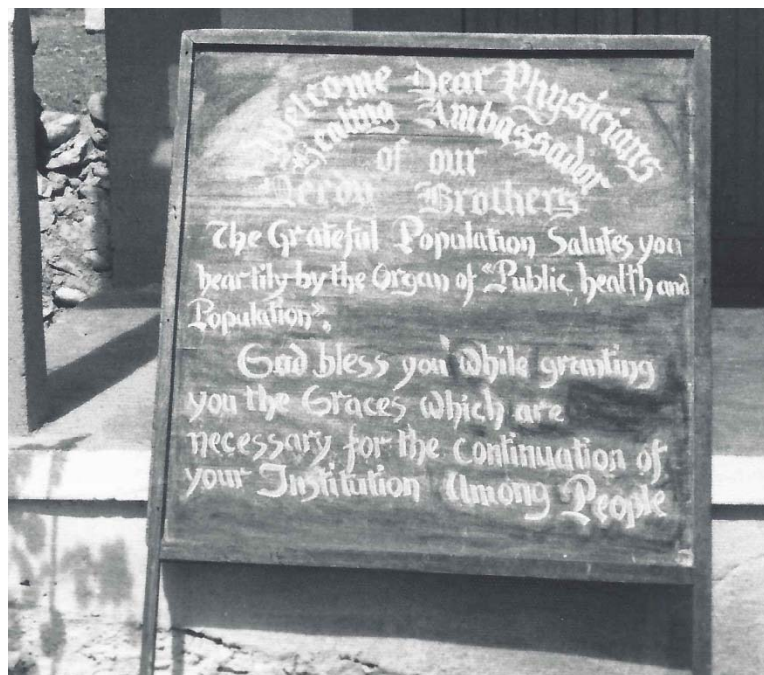 Welcome Dear Physicians
Healing Ambassador
of our
Brothers
The Grateful Population Salutes you
heartily by the Organ of "Public health and
Population".
God bless you while granting
you the Graces which are
necessary for the continuation of
your Institution Among People